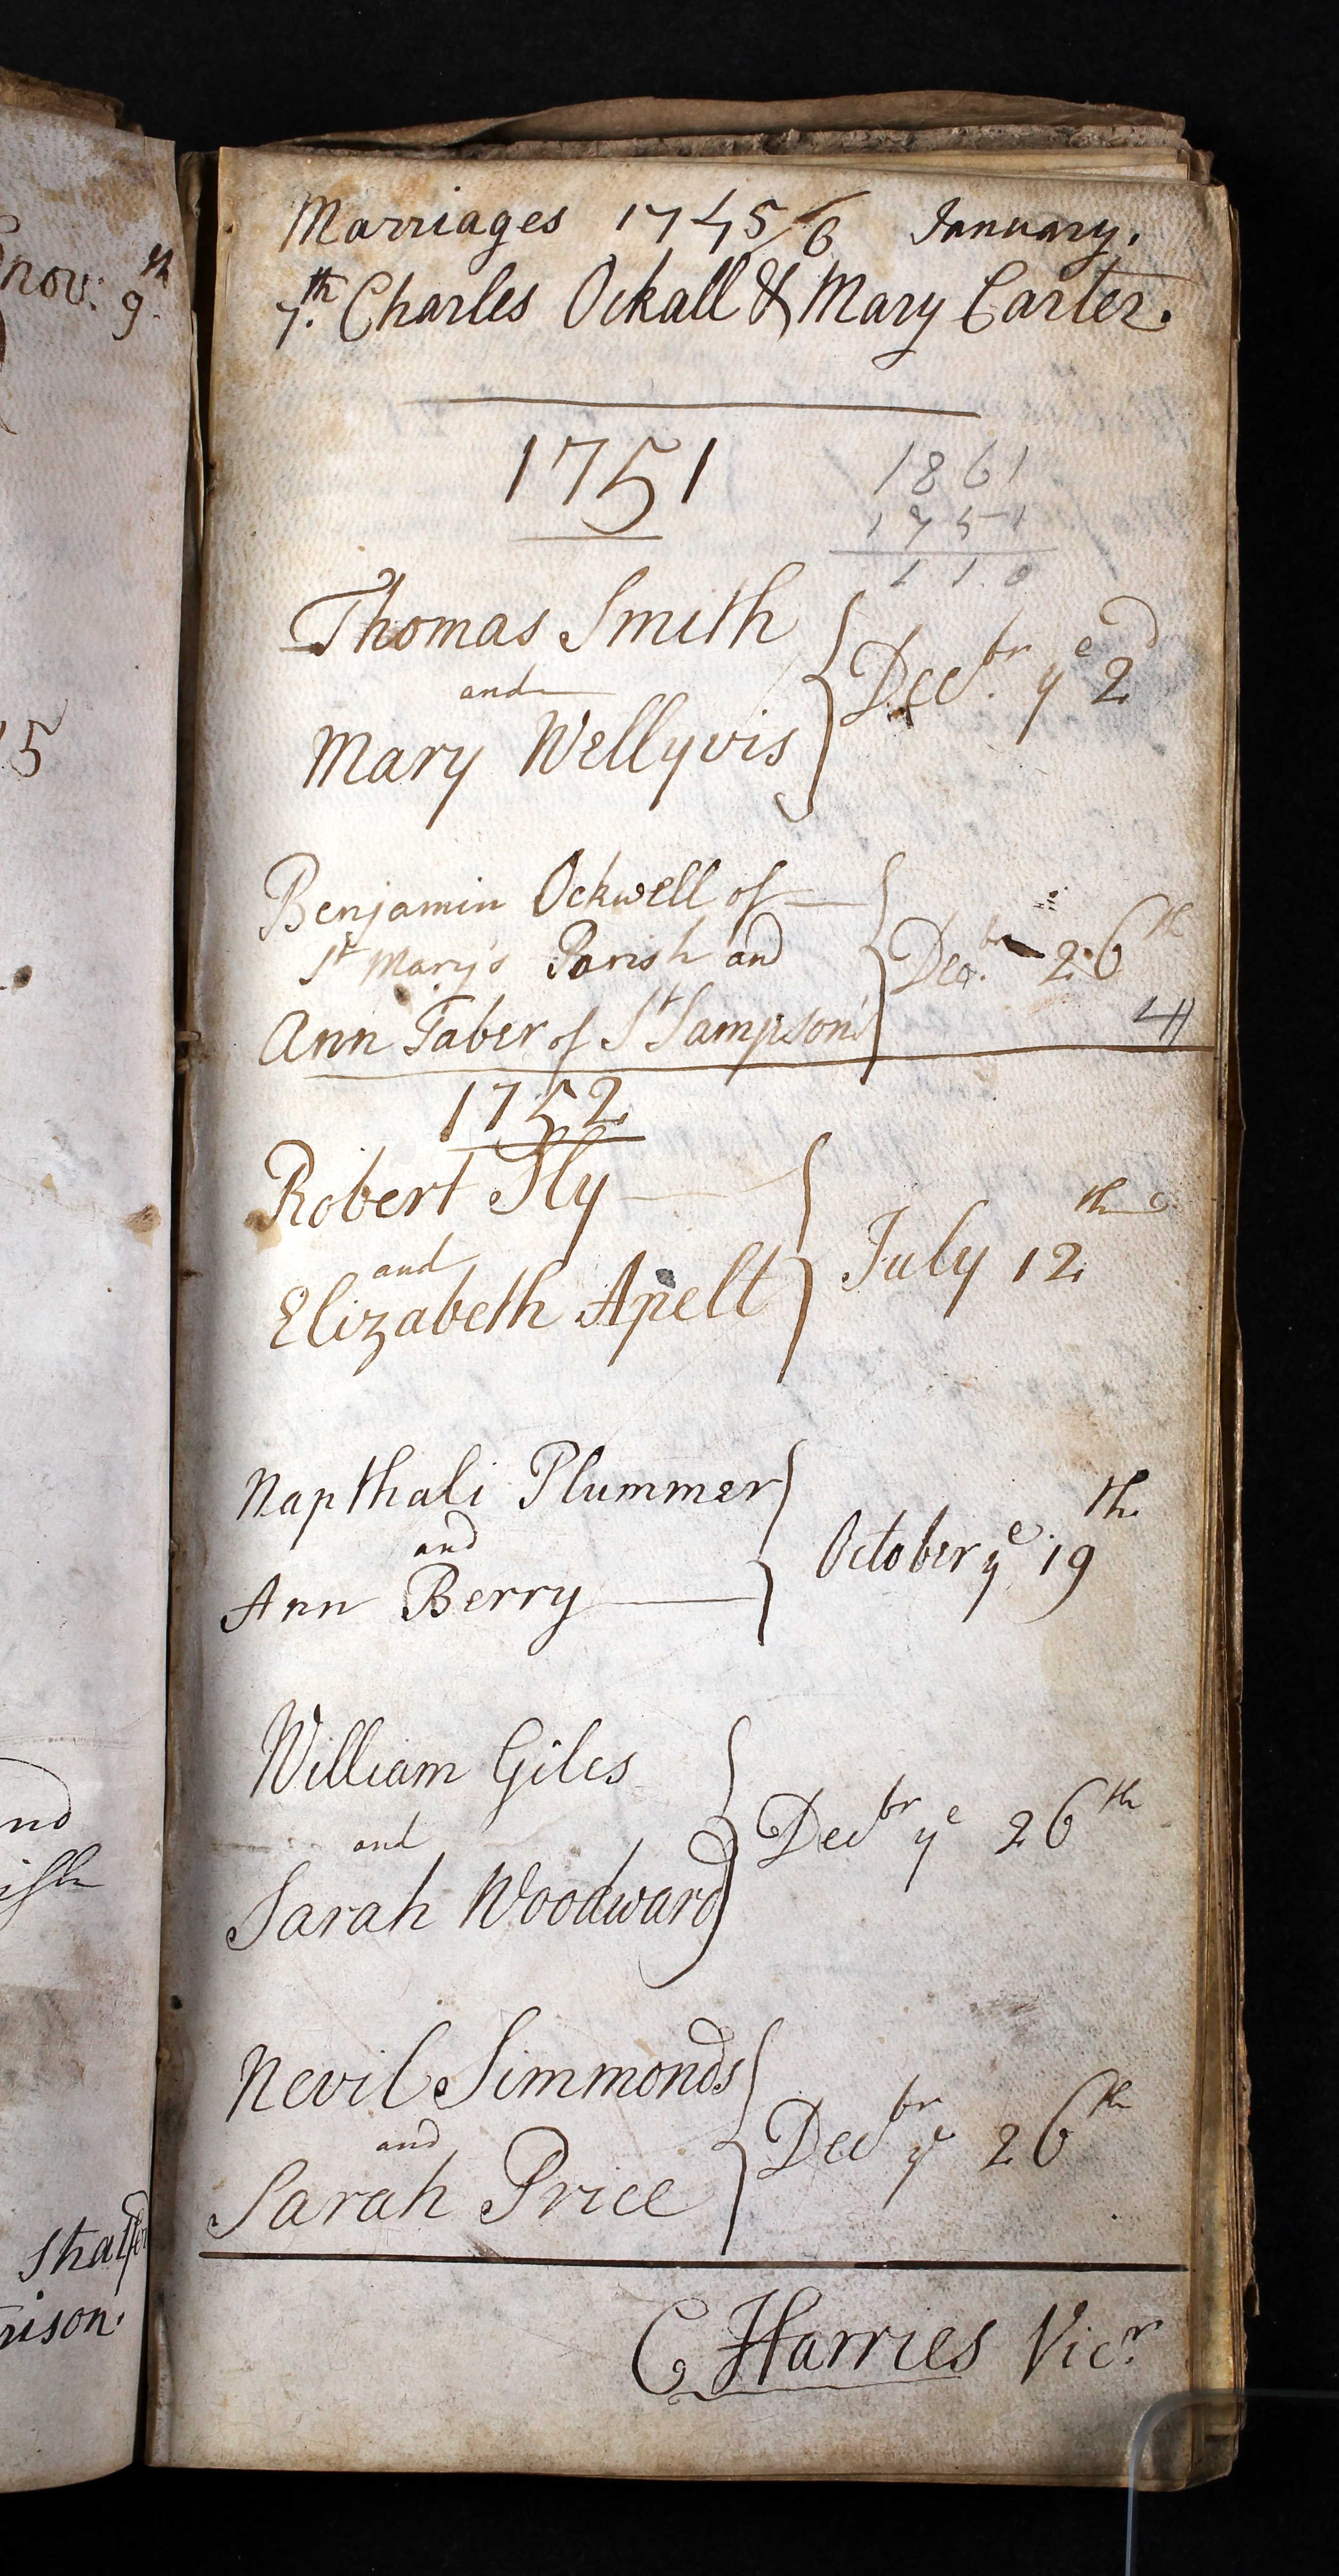 nov: 9th
15
nd
ish
Marriages 1745/6 January.
7.th Charles Ockall & Mary Carter.
1751
1861
1751
110
Thomas Smith
and
Mary Wellyvis
Decbr. ye 2d
Benjamin Ockwell of
St Mary's Parish and
Ann Taber of St Sampson's
Decbr. 26th
4
1752
Robert Sly
and
Elizabeth Apelt
July 12th
Napthali Plummer
and
Ann Berry
October ye 19th
William Giles
and
Sarah Woodward
Decbr ye 26th
Nevil Simmonds
and
Sarah Price
Decbr ye 26th
C Harries Vicr.